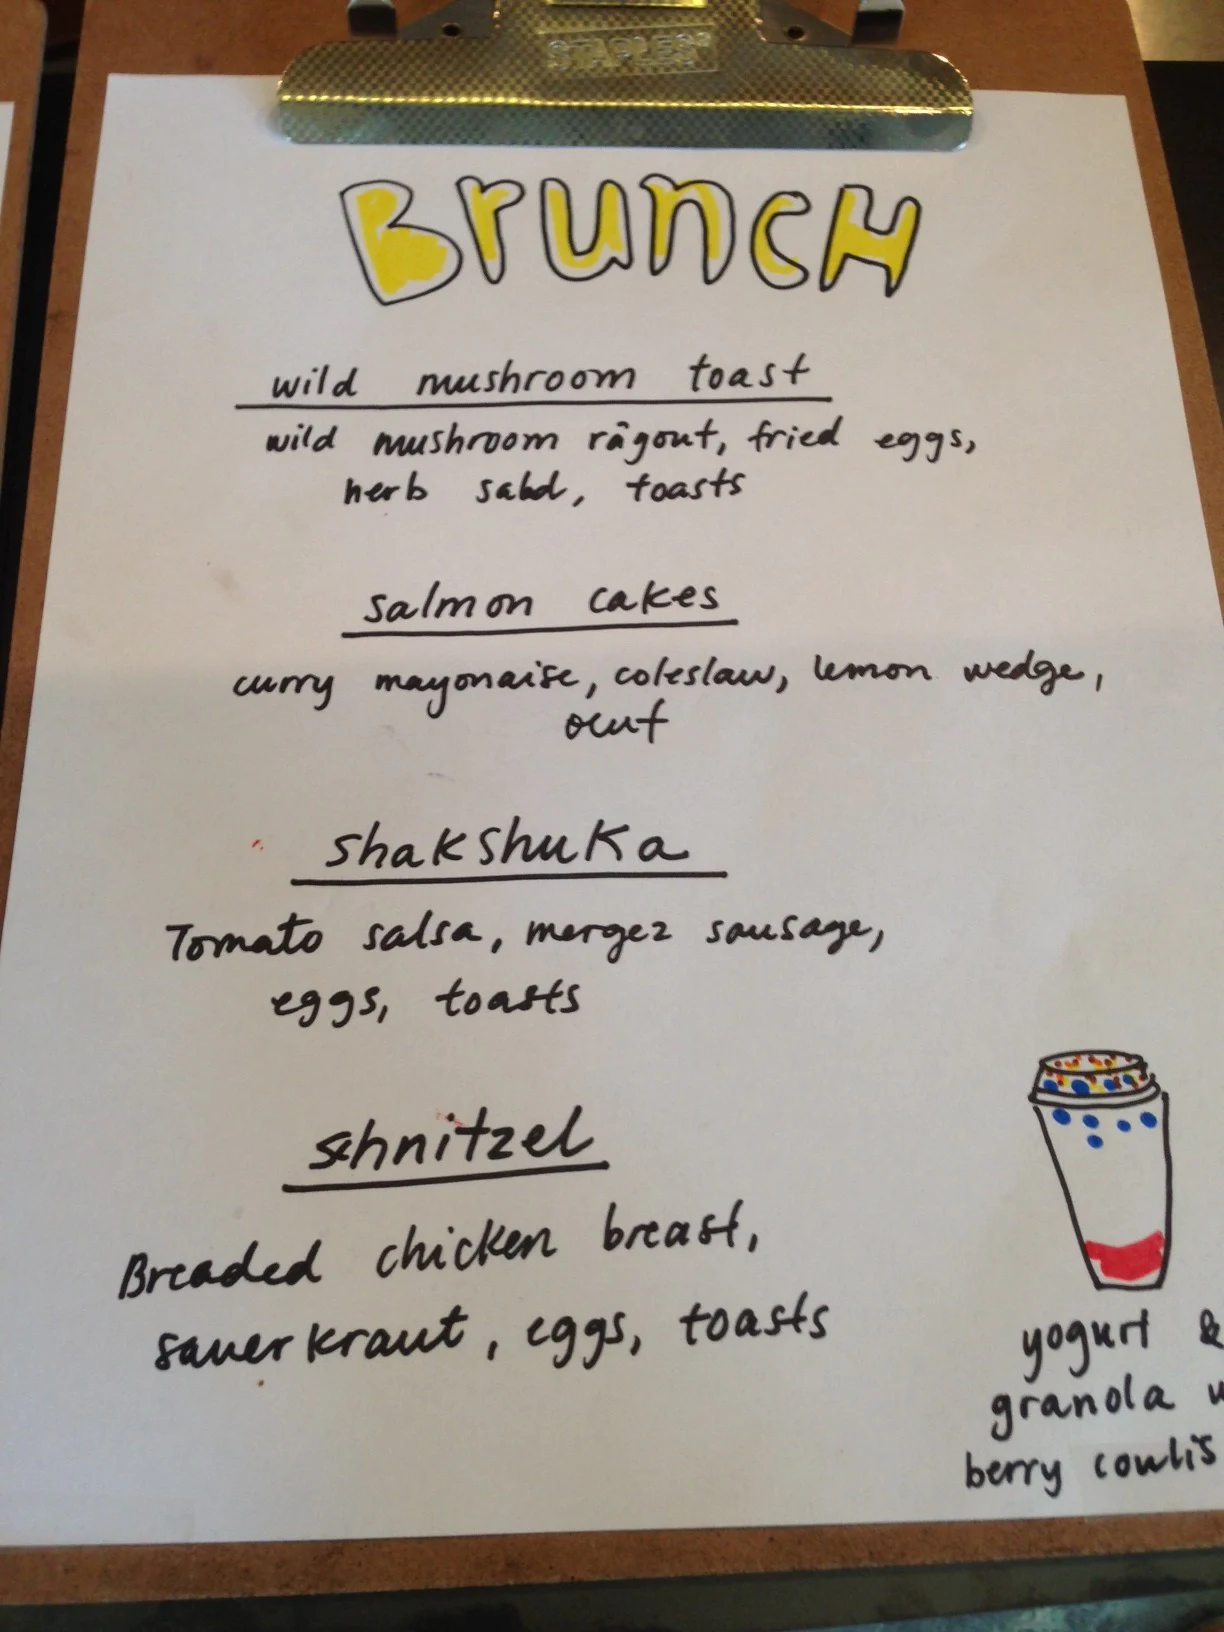 STAPLES
BrUncH
wild mushroom toast
wild mushroom rāgout, fried eggs,
herb salad, toasts
salmon cakes
curry mayonaise, coleslaw, lemon wedge,
oeuf
shakshuka
Tomato salsa, merguez sausage,
eggs, toasts
schnitzel
Breaded chicken breast,
sauerkraut, eggs, toasts
yogurt &
granola w
berry coulis